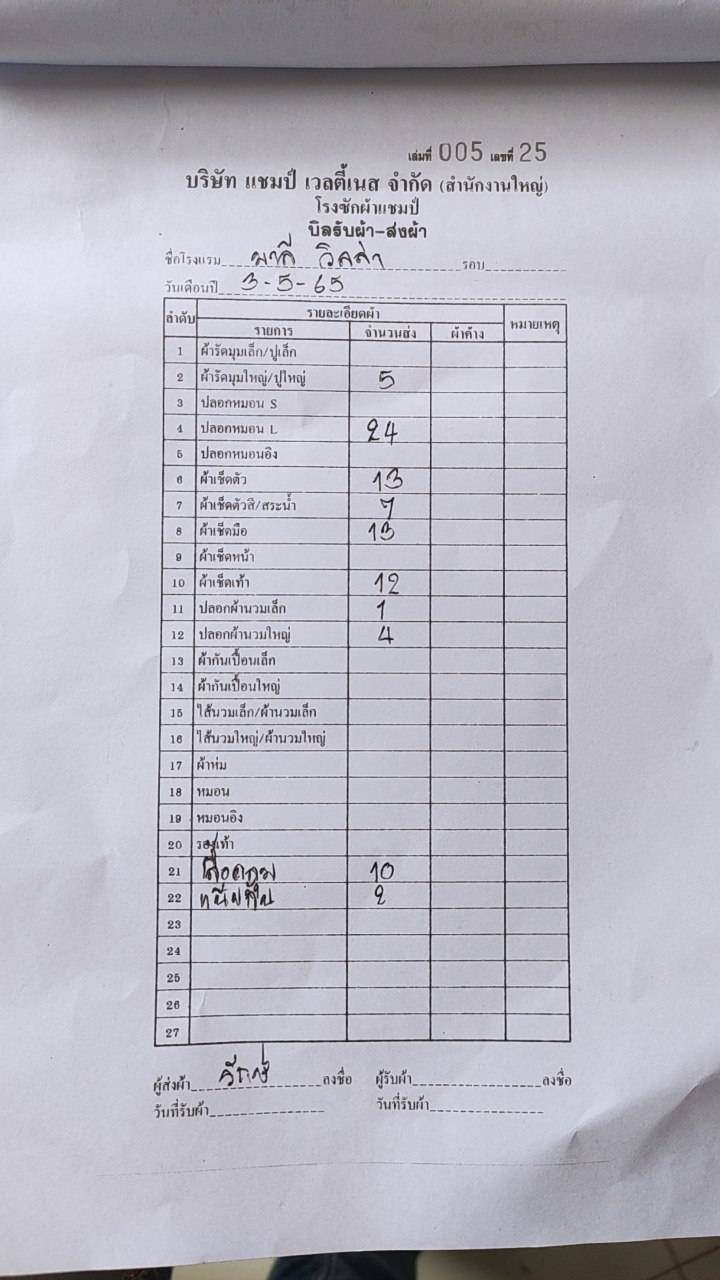 เล่มที่ 005 เลขที่ 25
บริษัท แชมป์ เวลตี้เนส จำกัด (สำนักงานใหญ่)
โรงซักผ้าแชมป์
บิลรับผ้า-ส่งผ้า
ชื่อโรงแรม วิลล่า รอบ
วันเดือนปี 3-5-65
ลำดับ รายละเอียดผ้า หมายเหตุ
รายการ จำนวนส่ง ผ้าค้าง
1 ผ้ารัดมุมเล็ก/ปูเล็ก
2 ผ้ารัดมุมใหญ่/ปูใหญ่ 5
3 ปลอกหมอน S
4 ปลอกหมอน L 24
5 ปลอกหมอนอิง
6 ผ้าเช็ดตัว 13
7 ผ้าเช็ดตัวสี/สระน้ำ 7
8 ผ้าเช็ดมือ 13
9 ผ้าเช็ดหน้า
10 ผ้าเช็ดเท้า 12
11 ปลอกผ้านวมเล็ก 1
12 ปลอกผ้านวมใหญ่ 4
13 ผ้ากันเปื้อนเล็ก
14 ผ้ากันเปื้อนใหญ่
15 ไส้นวมเล็ก/ผ้านวมเล็ก
16 ไส้นวมใหญ่/ผ้านวมใหญ่
17 ผ้าห่ม
18 หมอน
19 หมอนอิง
20 รองเท้า
21 เสื้อคลุม 10
22 2
23
24
25
26
27
ผู้ส่งผ้า ลงชื่อ ผู้รับผ้า ลงชื่อ
วันที่รับผ้า วันที่รับผ้า